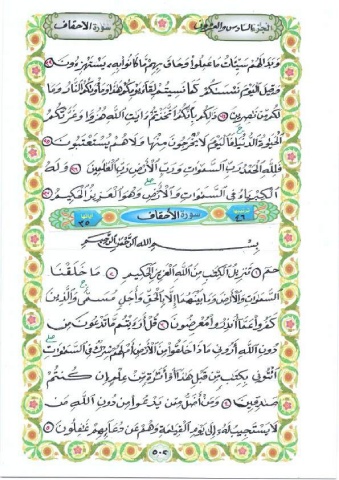 الجزء السادس والعشرون
سورة الأحقاف
وَبَدَا لَهُمْ سَيِّئَاتُ مَا عَمِلُوا وَحَاقَ بِهِمْ مَا كَانُوا بِهِ يَسْتَهْزِءُونَ
وَقِيلَ الْيَوْمَ نَنْسَاكُمْ كَمَا نَسِيتُمْ لِقَاءَ يَوْمِكُمْ هَذَا وَمَأْوَاكُمُ النَّارُ وَمَا
لَكُمْ مِنْ نَاصِرِينَ ذَلِكُمْ بِأَنَّكُمُ اتَّخَذْتُمْ آيَاتِ اللَّهِ هُزُوًا وَغَرَّتْكُمُ
الْحَيَوةُ الدُّنْيَا فَالْيَوْمَ لَا يُخْرَجُونَ مِنْهَا وَلَا هُمْ يُسْتَعْتَبُونَ
فَلِلَّهِ الْحَمْدُ رَبِّ السَّمَوَاتِ وَرَبِّ الْأَرْضِ رَبِّ الْعَالَمِينَ وَلَهُ
الْكِبْرِيَاءُ فِي السَّمَوَاتِ وَالْأَرْضِ وَهُوَ الْعَزِيزُ الْحَكِيمُ
٤٦ سورة الأحقاف ٣٥
بِسْمِ اللَّهِ الرَّحْمَنِ الرَّحِيمِ
حم تَنْزِيلُ الْكِتَابِ مِنَ اللَّهِ الْعَزِيزِ الْحَكِيمِ مَا خَلَقْنَا
السَّمَوَاتِ وَالْأَرْضَ وَمَا بَيْنَهُمَا إِلَّا بِالْحَقِّ وَأَجَلٍ مُسَمًّى وَالَّذِينَ
كَفَرُوا عَمَّا أُنْذِرُوا مُعْرِضُونَ قُلْ أَرَءَيْتُمْ مَا تَدْعُونَ مِنْ
دُونِ اللَّهِ أَرُونِي مَاذَا خَلَقُوا مِنَ الْأَرْضِ أَمْ لَهُمْ شِرْكٌ فِي السَّمَوَاتِ
ائْتُونِي بِكِتَابٍ مِنْ قَبْلِ هَذَا أَوْ أَثَارَةٍ مِنْ عِلْمٍ إِنْ كُنْتُمْ
صَادِقِينَ وَمَنْ أَضَلُّ مِمَّنْ يَدْعُوا مِنْ دُونِ اللَّهِ مَنْ
لَا يَسْتَجِيبُ لَهُ إِلَى يَوْمِ الْقِيَامَةِ وَهُمْ عَنْ دُعَائِهِمْ غَافِلُونَ
٥٠٢